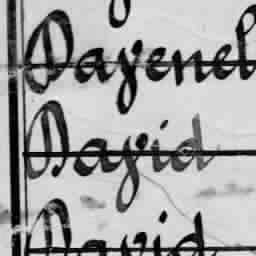 Dayenel
Dayid
David